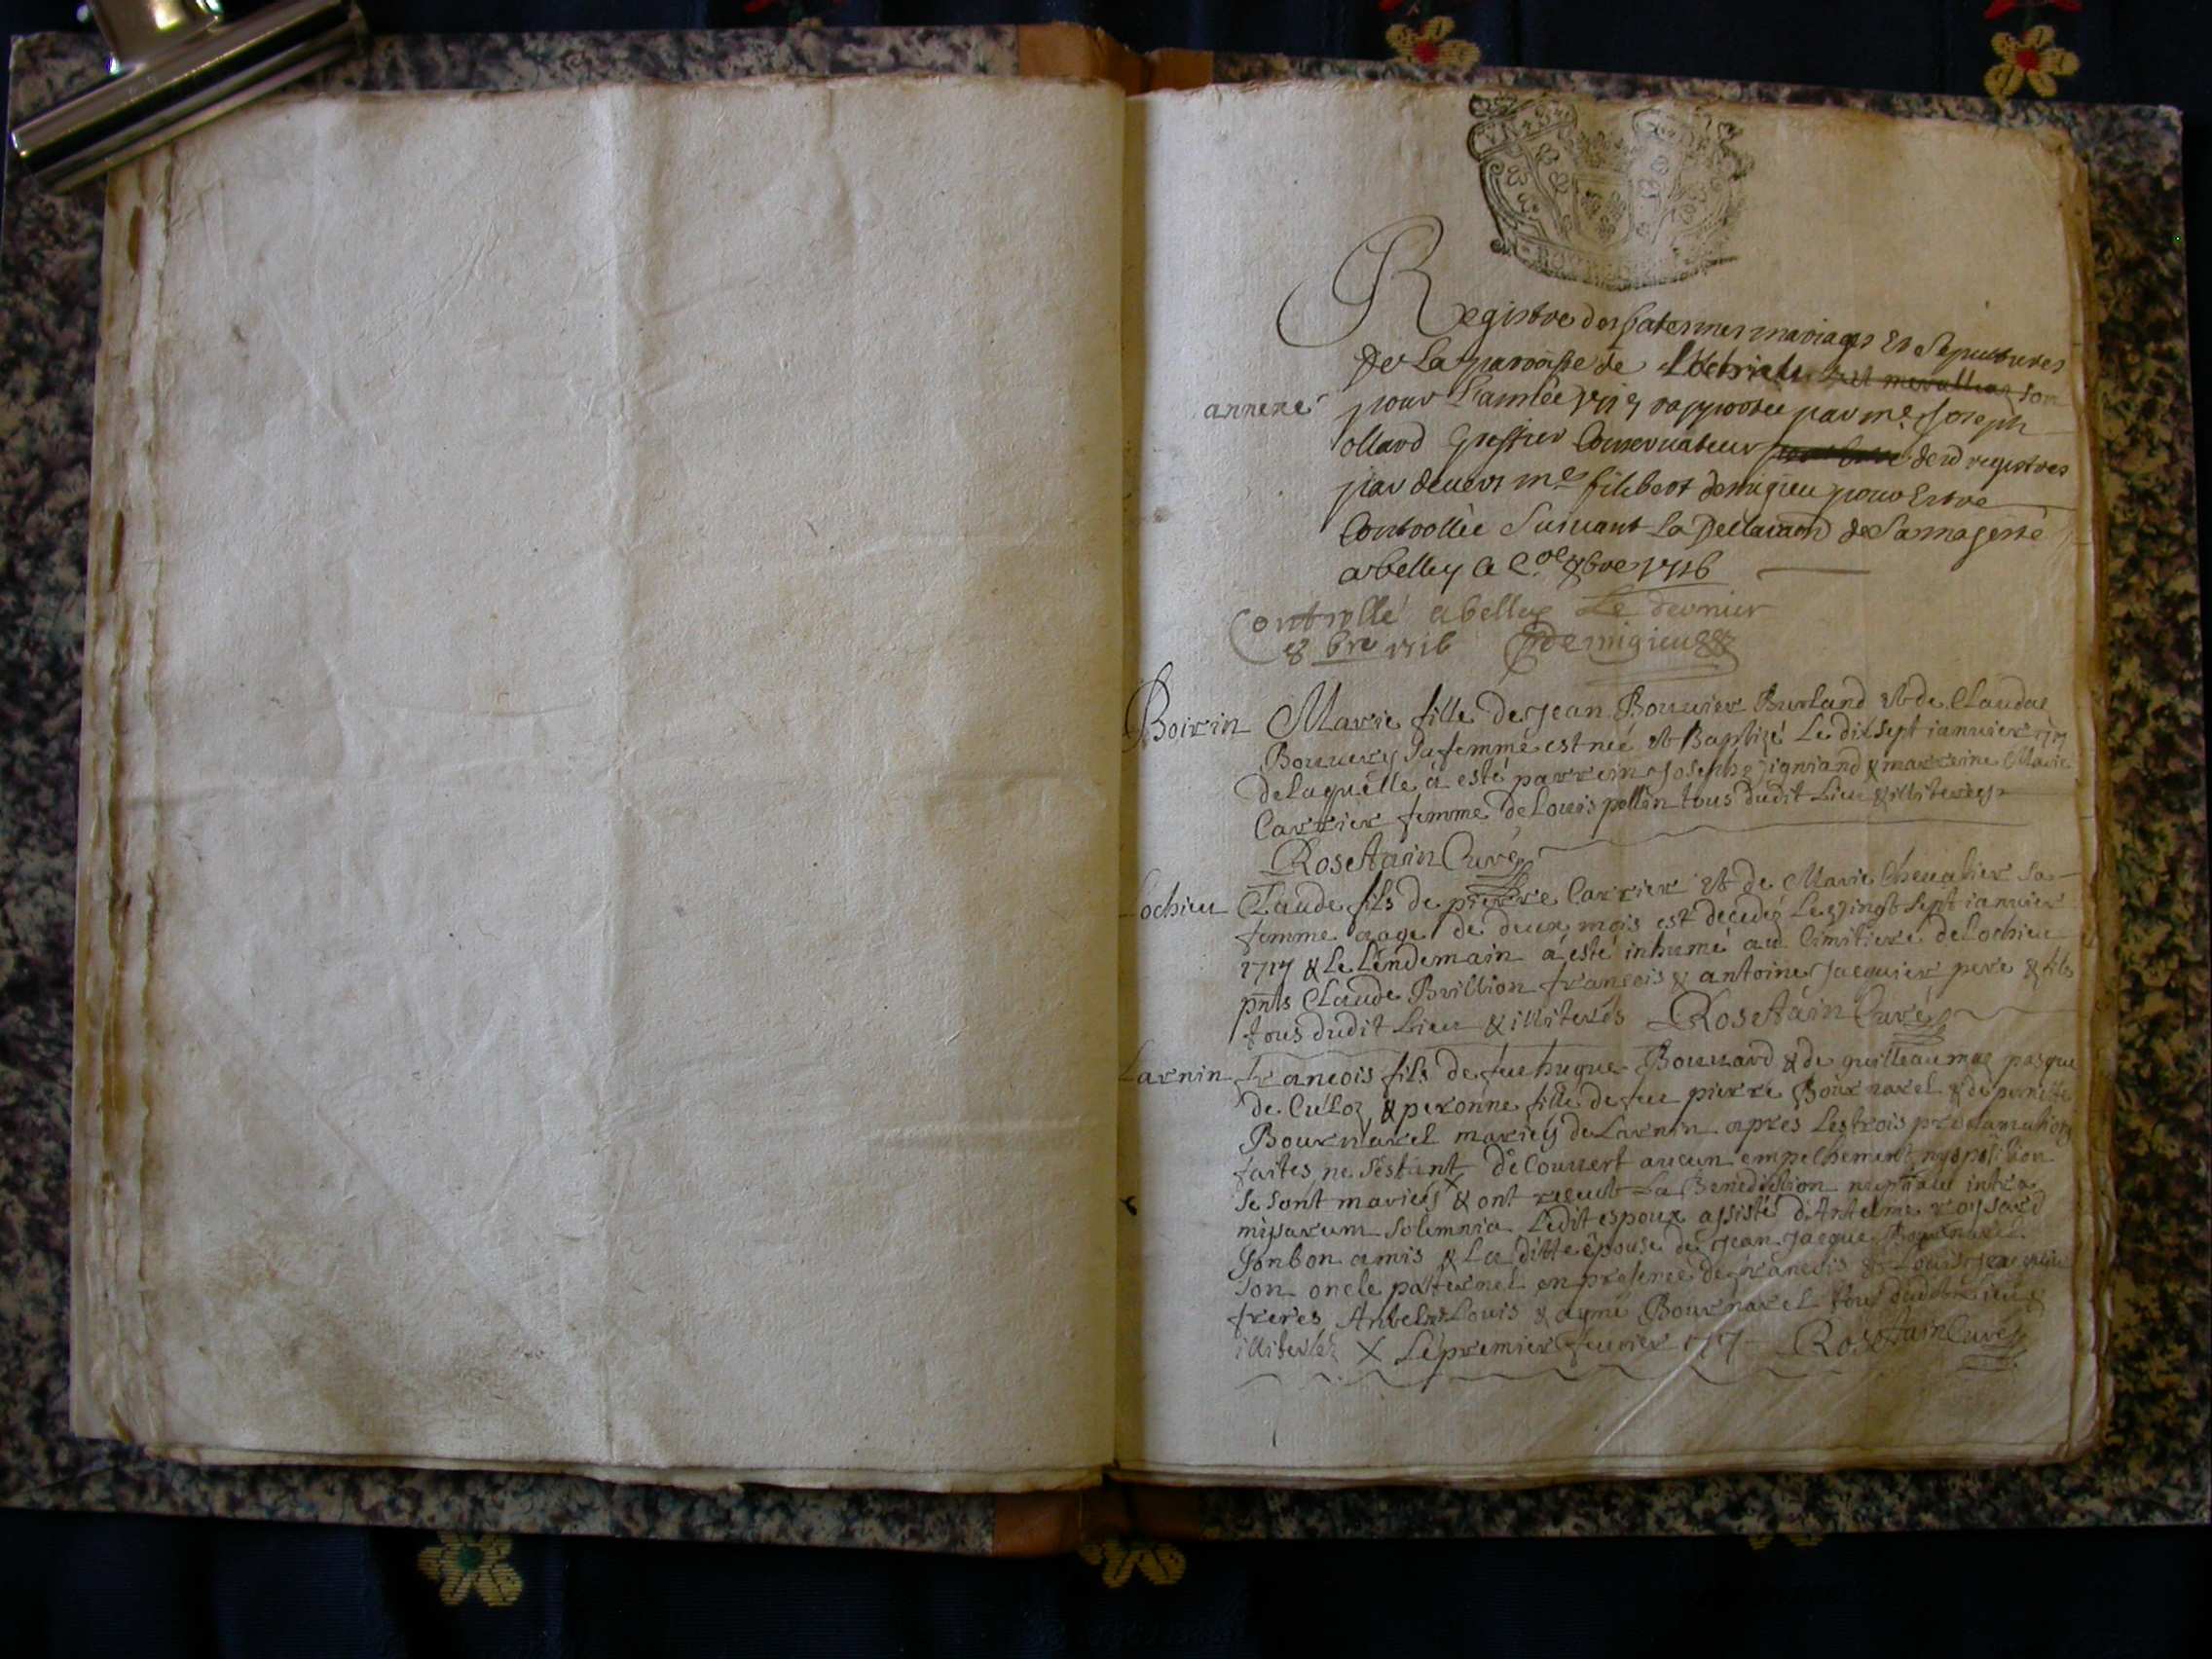 Registre des batesmes mariages et Sepultures
de La parroisse de son
annexe pour L'année 1717 rapportée par me. Joseph
ollard Greffier Conservateur desd registres
par devers me filibert demigieu pour Estre
Controollée Suivant La Dellaraon de Sa magesté
a belley ce 8bre 1716
Controllé a belley Le dernier
8bre 1716 Demigieu
Boirin Marie fille de Jean Bouvier Burland et de Claudae
Bouvery sa femme est neé et Baptizé Le dix sept ianvier 1717
de laquelle a esté parrein Joseph jigniand & marreine Marie
Carrier femme de Louis pollin tous dudit Lieu & illiterés
Rosetain Curé
Lochieu Claude fils de pierre Carrier et de Marie Chevalier sa
femme aagé de deux mois est decedé Le vingt sept ianvier
1717 & Le Lendemain a esté inhumé au Cimitiere de Lochieu
pnts Claude Brillion francois & antoine Jacquier pere & fils
tous dudit Lieu & illiterés Rosetain Curé
Larnin francois fils de feu hugue Bouvard & de guilleaumaz pasque
de Culoz & peronne fille de feu pierre Bournarel & de pernette
Bournarel mariés de Larnin apres Les trois proclamations
faites ne s'estant déCouvert aucun empeChement ny oposition
se sont mariés X & ont receut La Benediction nuptiale intra
missarum solemnia Ledit espoux assisté d'Antelme roissard
son bon amis & La ditte épouse de Jean Jacque Bournarel
son oncle paternel en presence de francois & Louis
freres Antelme Louis & aymé Bournarel tous dudit Lieu &
illiterés X Le premier fevrier 1717 Rosetain Curé